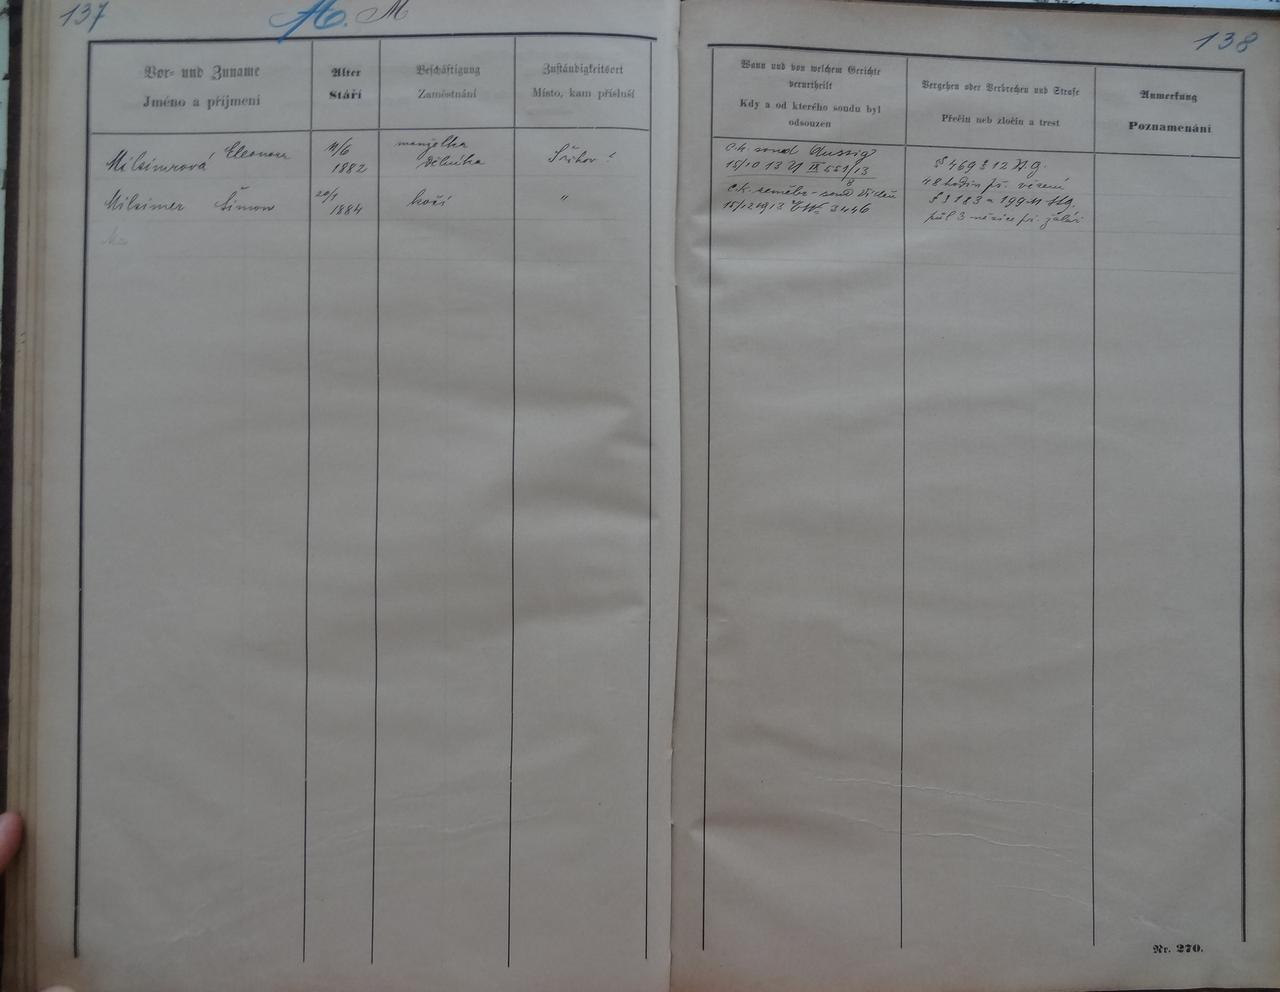 137
M. M
138
Vor- und Zuname
Jméno a příjmení
Alter
Stáří
Beschäftigung
Zaměstnání
Zuständigkeitsort
Místo, kam přísluší
Wann und von welchem Gerichte
verurtheilt
Kdy a od kterého soudu byl
odsouzen
Vergehen oder Verbrechen und Strafe
Přečin neb zločin a trest
Anmerkung
Poznamenání
Eleonora
11/6
1882
manželka
dělníka
c.k. soud Aussig
15/10 13 U IX 551/13
8
§ 469 § 12
48 hodin vězení
Šimon
20/1
1884
kočí
"
c.k. soud
15/12 1913 3446
§ § 183 a 199
půl 3 měsíce žalář
Nr. 270.